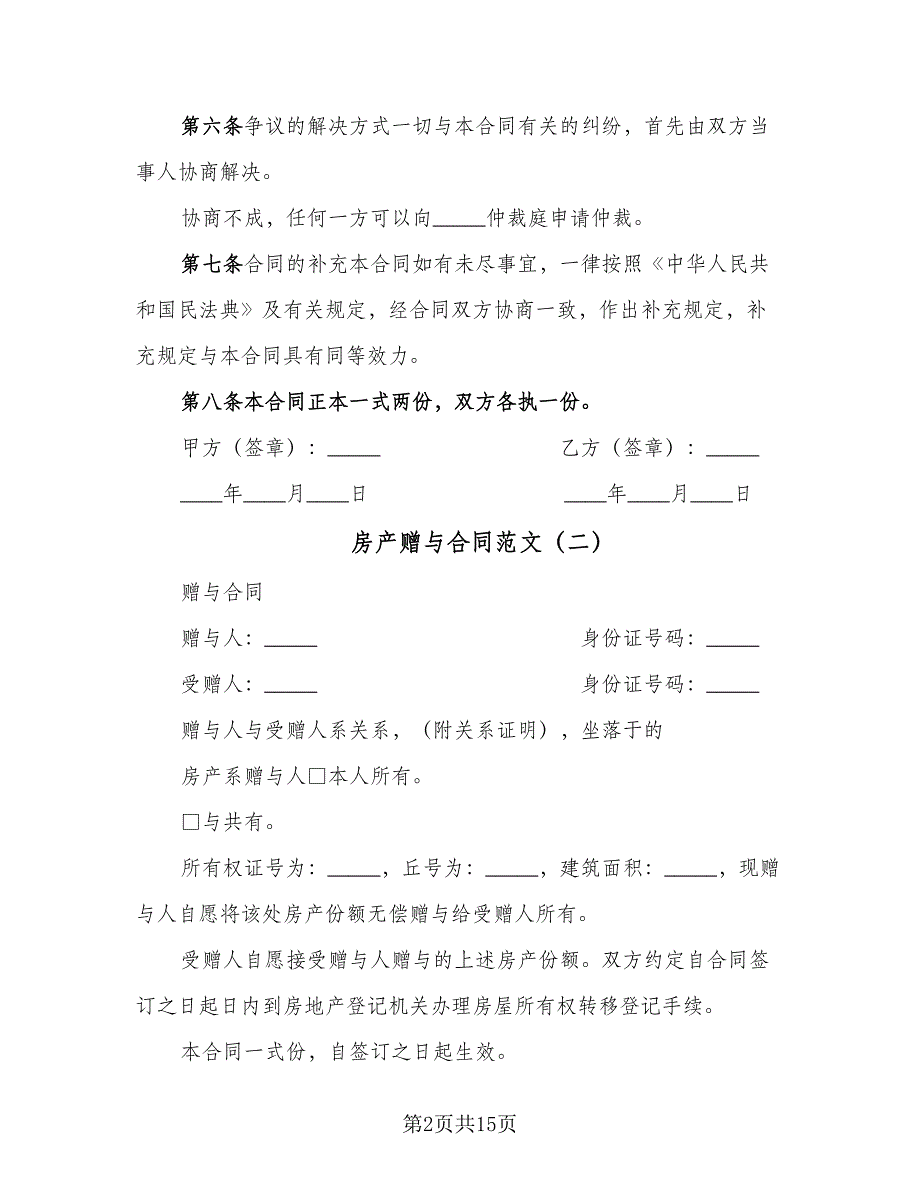 第六条争议的解决方式一切与本合同有关的纠纷，首先由双方当
事人协商解决。
协商不成，任何一方可以向_____仲裁庭申请仲裁。
第七条合同的补充本合同如有未尽事宜，一律按照《中华人民共
和国民法典》及有关规定，经合同双方协商一致，作出补充规定，补
充规定与本合同具有同等效力。
第八条本合同正本一式两份，双方各执一份。
甲方（签章）：_____ 乙方（签章）：_____
____年____月____日 ____年____月____日
房产赠与合同范文（二）
赠与合同
赠与人：_____ 身份证号码：_____
受赠人：_____ 身份证号码：_____
赠与人与受赠人系关系，（附关系证明），坐落于的
房产系赠与人□本人所有。
□与共有。
所有权证号为：_____，丘号为：_____，建筑面积：_____，现赠
与人自愿将该处房产份额无偿赠与给受赠人所有。
受赠人自愿接受赠与人赠与的上述房产份额。双方约定自合同签
订之日起日内到房地产登记机关办理房屋所有权转移登记手续。
本合同一式份，自签订之日起生效。
第2页共15页